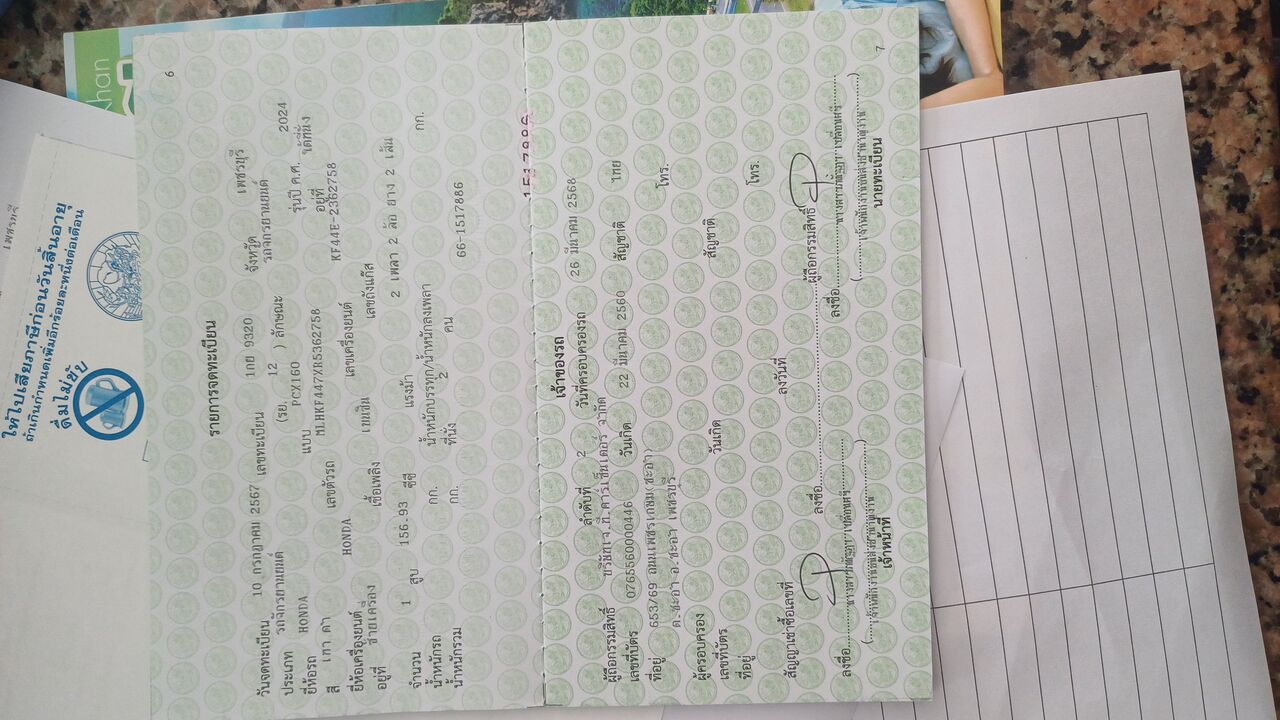 6
รายการจดทะเบียน
วันจดทะเบียน 10 กรกฎาคม 2567 เลขทะเบียน 1กย 9320 จังหวัด เพชรบุรี
ประเภท รถจักรยานยนต์ (รย. 12 ) ลักษณะ รถจักรยานยนต์
ยี่ห้อรถ HONDA แบบ PCX160 รุ่นปี ค.ศ. 2024
สี เทา ดำ เลขตัวรถ MLHKF447XR5362758 อยู่ที่ ใต้ที่นั่ง
ยี่ห้อเครื่องยนต์ HONDA เลขเครื่องยนต์ KF44E-2362758
อยู่ที่ ซ้ายเครื่อง เชื้อเพลิง เบนซิน เลขถังแก๊ส
จำนวน 1 สูบ 156.93 ซีซี แรงม้า 2 เพลา 2 ล้อ ยาง 2 เส้น
น้ำหนักรถ กก. น้ำหนักบรรทุก/น้ำหนักลงเพลา กก.
น้ำหนักรวม กก. ที่นั่ง 2 คน 66-1517886
1517886
เจ้าของรถ
ลำดับที่ 2 วันที่ครอบครองรถ 26 มีนาคม 2568
ผู้ถือกรรมสิทธิ์ บริษัทเจ.ที.คาร์เซ็นเตอร์ จำกัด
เลขที่บัตร 0765560000446 วันเกิด 22 มีนาคม 2560 สัญชาติ ไทย
ที่อยู่ 653/69 ถนนเพชรเกษม(ชะอำ) โทร.
ต.ชะอำ อ.ชะอำ เพชรบุรี
ผู้ครอบครอง
เลขที่บัตร วันเกิด สัญชาติ
ที่อยู่ โทร.
สัญญาเช่าซื้อเลขที่ ลงวันที่
ลงชื่อ ผู้ถือกรรมสิทธิ์
ลงชื่อ ลงชื่อ
เจ้าหน้าที่ นายทะเบียน
7
ให้ไปเสียภาษีก่อนวันสิ้นอายุ
ถ้าเกินกำหนดเพิ่มอีกร้อยละหนึ่งต่อเดือน
ดื่มไม่ขับ
เพชรบุรี
khan